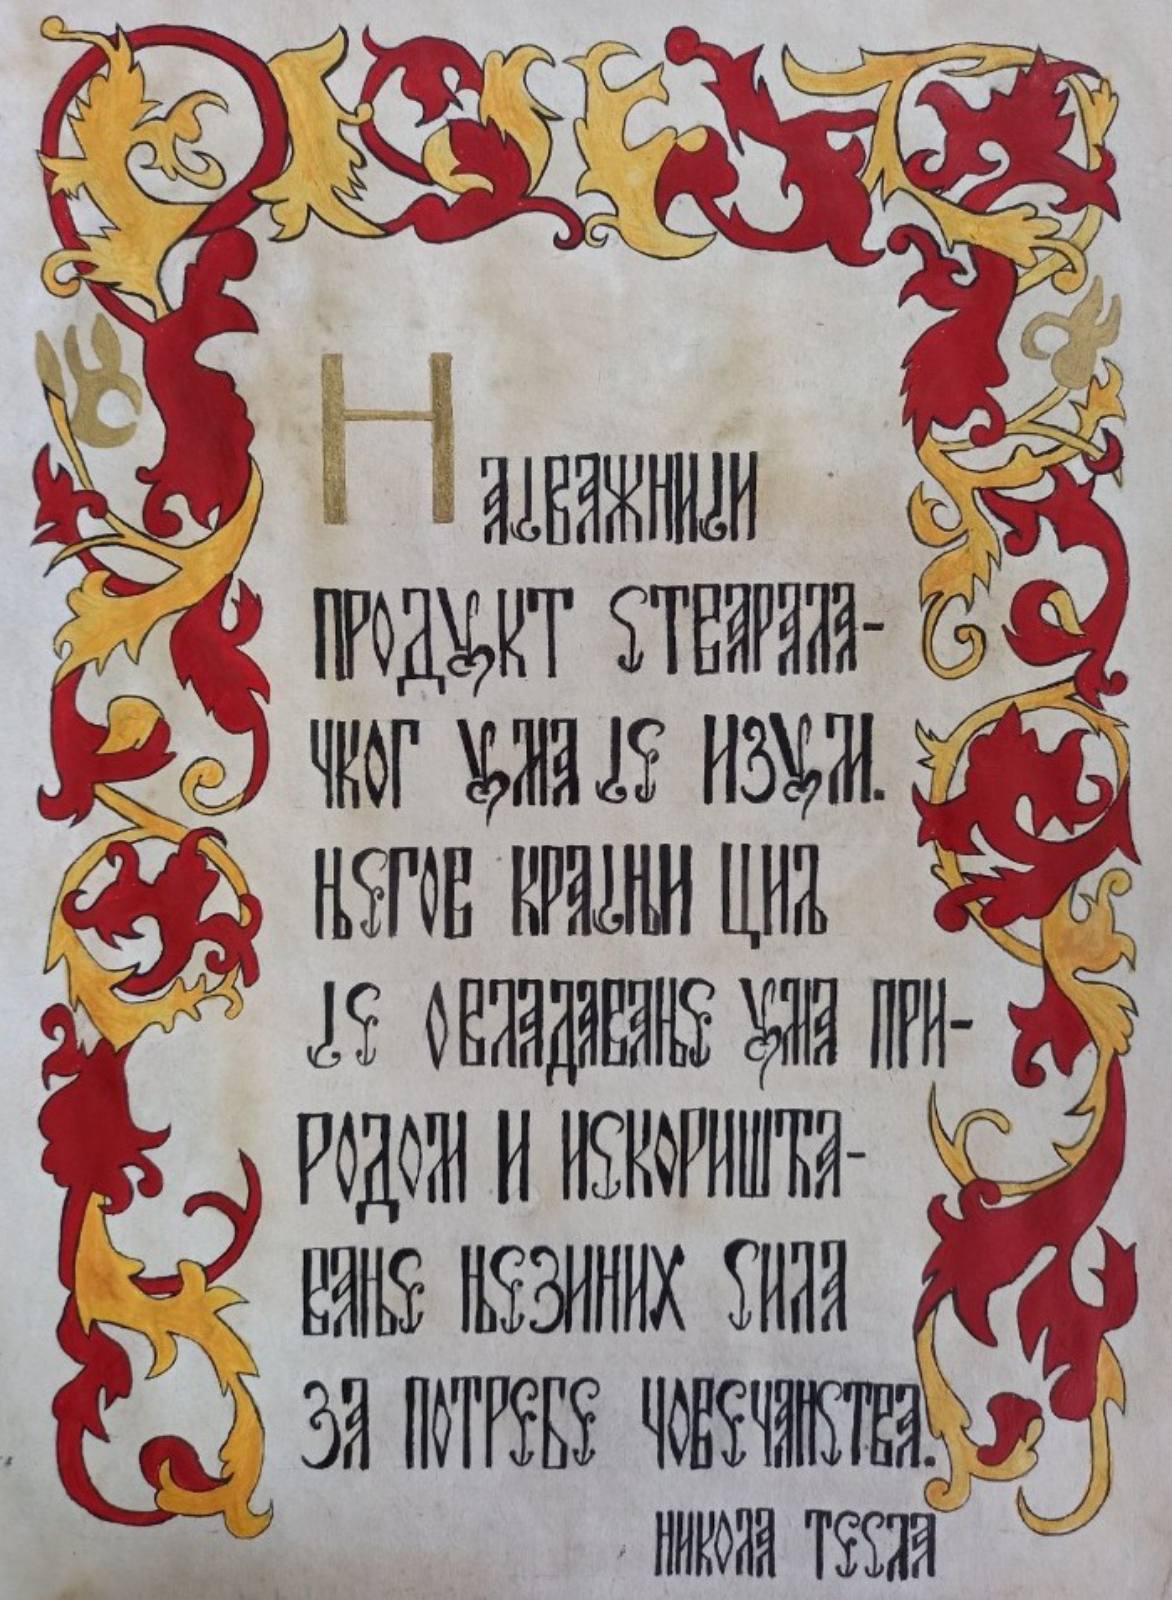 Најважнији
продукт ствара­ла-
чког ума је изум.
Његов крајњи циљ
је овладавање ума при-
родом и искоришћа-
вање њезиних сила
за потребе човечанства.
Никола Тесла